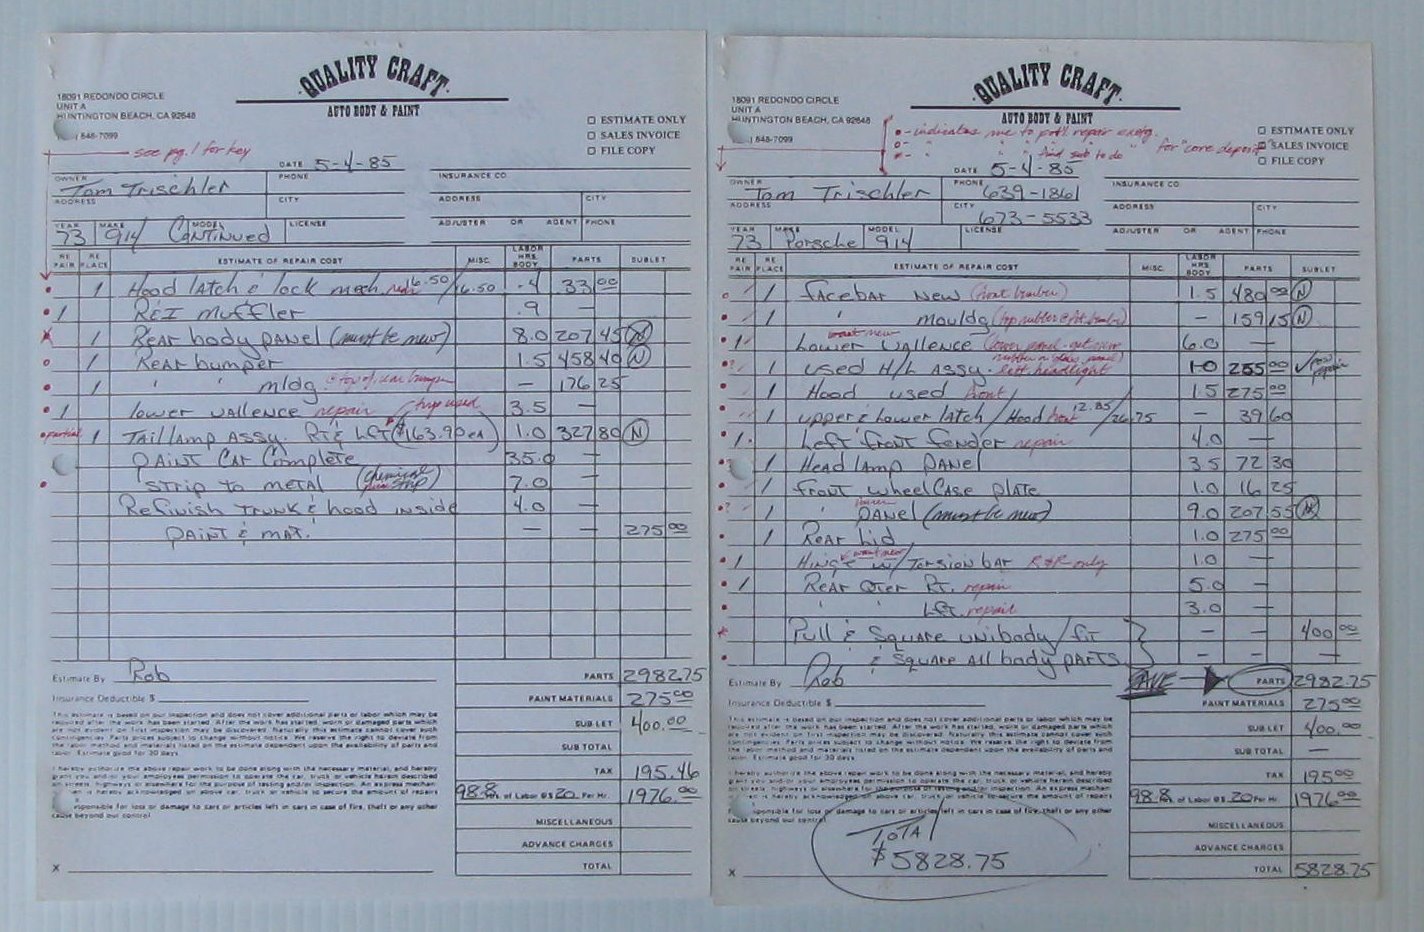 QUALITY CRAFT
AUTO BODY & PAINT
18091 REDONDO CIRCLE
UNIT A
HUNTINGTON BEACH, CA 92648
848-7099
ESTIMATE ONLY
SALES INVOICE
FILE COPY
see pg. 1 for key
DATE 5-4-85
OWNER Tom Trischler PHONE INSURANCE CO.
ADDRESS CITY ADDRESS CITY
YEAR 73 MAKE 914 MODEL Continued LICENSE ADJUSTER OR AGENT PHONE
REPAIR REPLACE ESTIMATE OF REPAIR COST MISC. LABOR HRS BODY PARTS SUBLET
1 Hood latch & lock mech. 16.50/16.50 .4 33 00
1 R&I muffler .9 —
1 Rear body panel (must be new) 8.0 207 45 N
1 Rear bumper 1.5 458 40 N
1 " " mldg. top of rear bumper — 176 25
1 lower vallence repair 3.5 —
partial 1 Tail lamp Assy. Rt & Lft ($163.90 ea) try used 1.0 327 80 N
Paint Car Complete 35.0 —
Strip to metal (chemical strip) 7.0 —
Refinish Trunk & hood inside 4.0 —
paint & mat. — — 275 00
Estimate By Rob PARTS 2982.75
Insurance Deductible $ PAINT MATERIALS 275 00
This estimate is based on our inspection and does not cover additional parts or labor which may be
required after the work has been started. After the work has started, worn or damaged parts which
are not evident on first inspection may be discovered. Naturally this estimate cannot cover such
contingencies. Parts prices subject to change without notice. We reserve the right to deviate from
the labor method and materials listed on the estimate dependent upon the availability of parts and
labor. Estimate good for 30 days.
I hereby authorize the above repair work to be done along with the necessary material, and hereby
grant you and/or your employees permission to operate the car, truck or vehicle herein described
on streets, highways or elsewhere for the purpose of testing and/or inspection. An express mechan-
en is hereby acknowledged on above car, truck or vehicle to secure the amount of repairs
sponsible for loss or damage to cars or articles left in cars in case of fire, theft or any other
cause beyond our control
SUB LET 400.00
SUB TOTAL
TAX 195.46
98.8 Hrs. of Labor @ $ 20 Per Hr. 1976.00
MISCELLANEOUS
ADVANCE CHARGES
TOTAL
X
QUALITY CRAFT
AUTO BODY & PAINT
18091 REDONDO CIRCLE
UNIT A
HUNTINGTON BEACH, CA 92648
) 848-7099
ESTIMATE ONLY
SALES INVOICE
FILE COPY
o - indicates me to pull repair
" " " " " and sub to do " for "core deposit"
DATE 5-4-85
OWNER Tom Trischler PHONE 639-1861 INSURANCE CO.
ADDRESS CITY 673-5533 ADDRESS CITY
YEAR 73 MAKE Porsche MODEL 914 LICENSE ADJUSTER OR AGENT PHONE
REPAIR REPLACE ESTIMATE OF REPAIR COST MISC. LABOR HRS BODY PARTS SUBLET
1 Facebar New (front bumber) 1.5 480 00 N
1 " mouldg (top rubber @ frt. bumber) — 159 15 N
1 want new Lower Vallence (lower panel 6.0 —
1 used H/L Assy. left headlight 1.0 255 00
1 Hood used front 1.5 275 00
1 upper & Lower latch / Hood front 12.85/26.75 — 39 60
1 Left front fender repair 4.0 —
1 Head lamp Panel 3.5 72 30
1 front wheel Case plate 1.0 16 25
1 " inner Panel (must be new) 9.0 207 55 N
1 Rear Lid 1.0 275 00
1 Hinge w/ Torsion bar want new R&R only 1.0
1 Rear Qter Rt. repair 5.0 —
" " Lft. repair 3.0 —
Pull & Square unibody/fit — — 400 00
& square All body parts — — —
Estimate By Rob PARTS 2982.75
Insurance Deductible $ PAINT MATERIALS 275 00
This estimate is based on our inspection and does not cover additional parts or labor which may be
required after the work has been started. After the work has started, worn or damaged parts which
are not evident on first inspection may be discovered. Naturally this estimate cannot cover such
contingencies. Parts prices subject to change without notice. We reserve the right to deviate from
the labor method and materials listed on the estimate dependent upon the availability of parts and
labor. Estimate good for 30 days
I hereby authorize the above repair work to be done along with the necessary material, and hereby
grant you and/or your employees permission to operate the car, truck or vehicle herein described
on streets, highways or elsewhere for the purpose of testing and/or inspection. An express mechan-
is hereby acknowledged on above car, truck or vehicle to secure the amount of repairs
sponsible for loss or damage to cars or articles left in cars in case of fire, theft or any other
cause beyond our control
SUB LET 400.00
SUB TOTAL —
TAX 195 00
98.8 Hrs. of Labor @ $ 20 Per Hr. 1976 00
MISCELLANEOUS
ADVANCE CHARGES
TOTAL 5828.75
Total
$5828.75
X